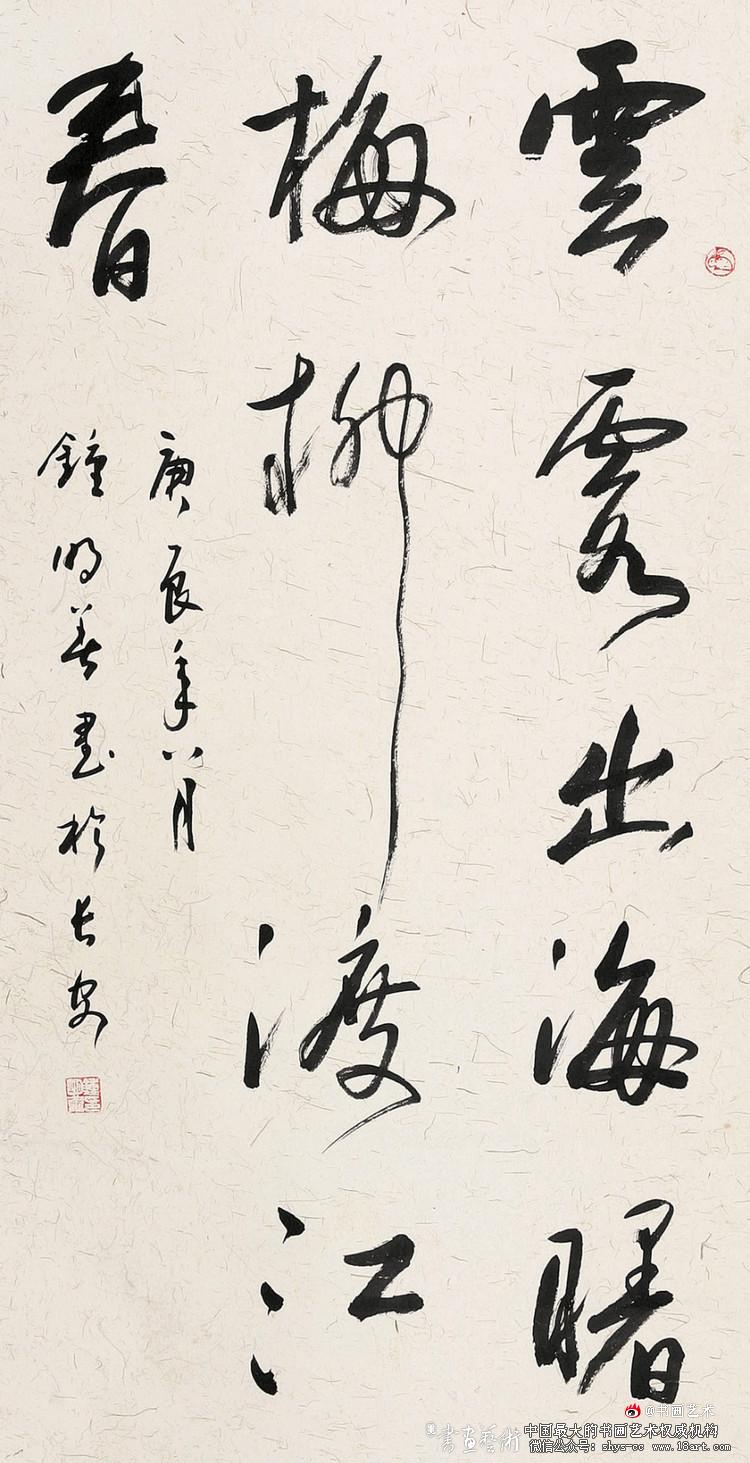 雲霞出海曙
梅柳渡江
春
庚辰年八月
鍾明善書於長安
@书画艺术
書画藝術
中国最大的书画艺术权威机构
微信公众号：shys-cc www.18art.com